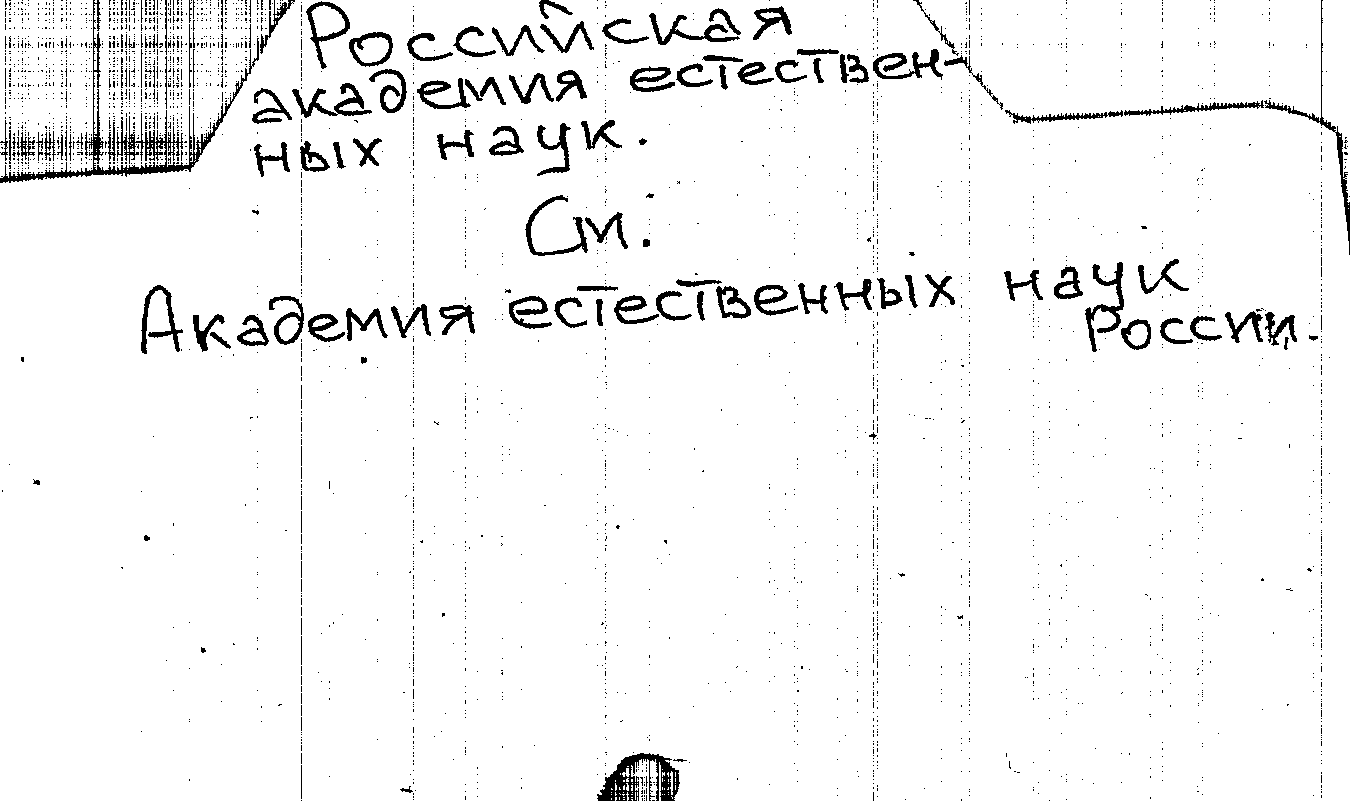 Российская
академия естествен-
ных наук.
См.
Академия естественных наук
России.